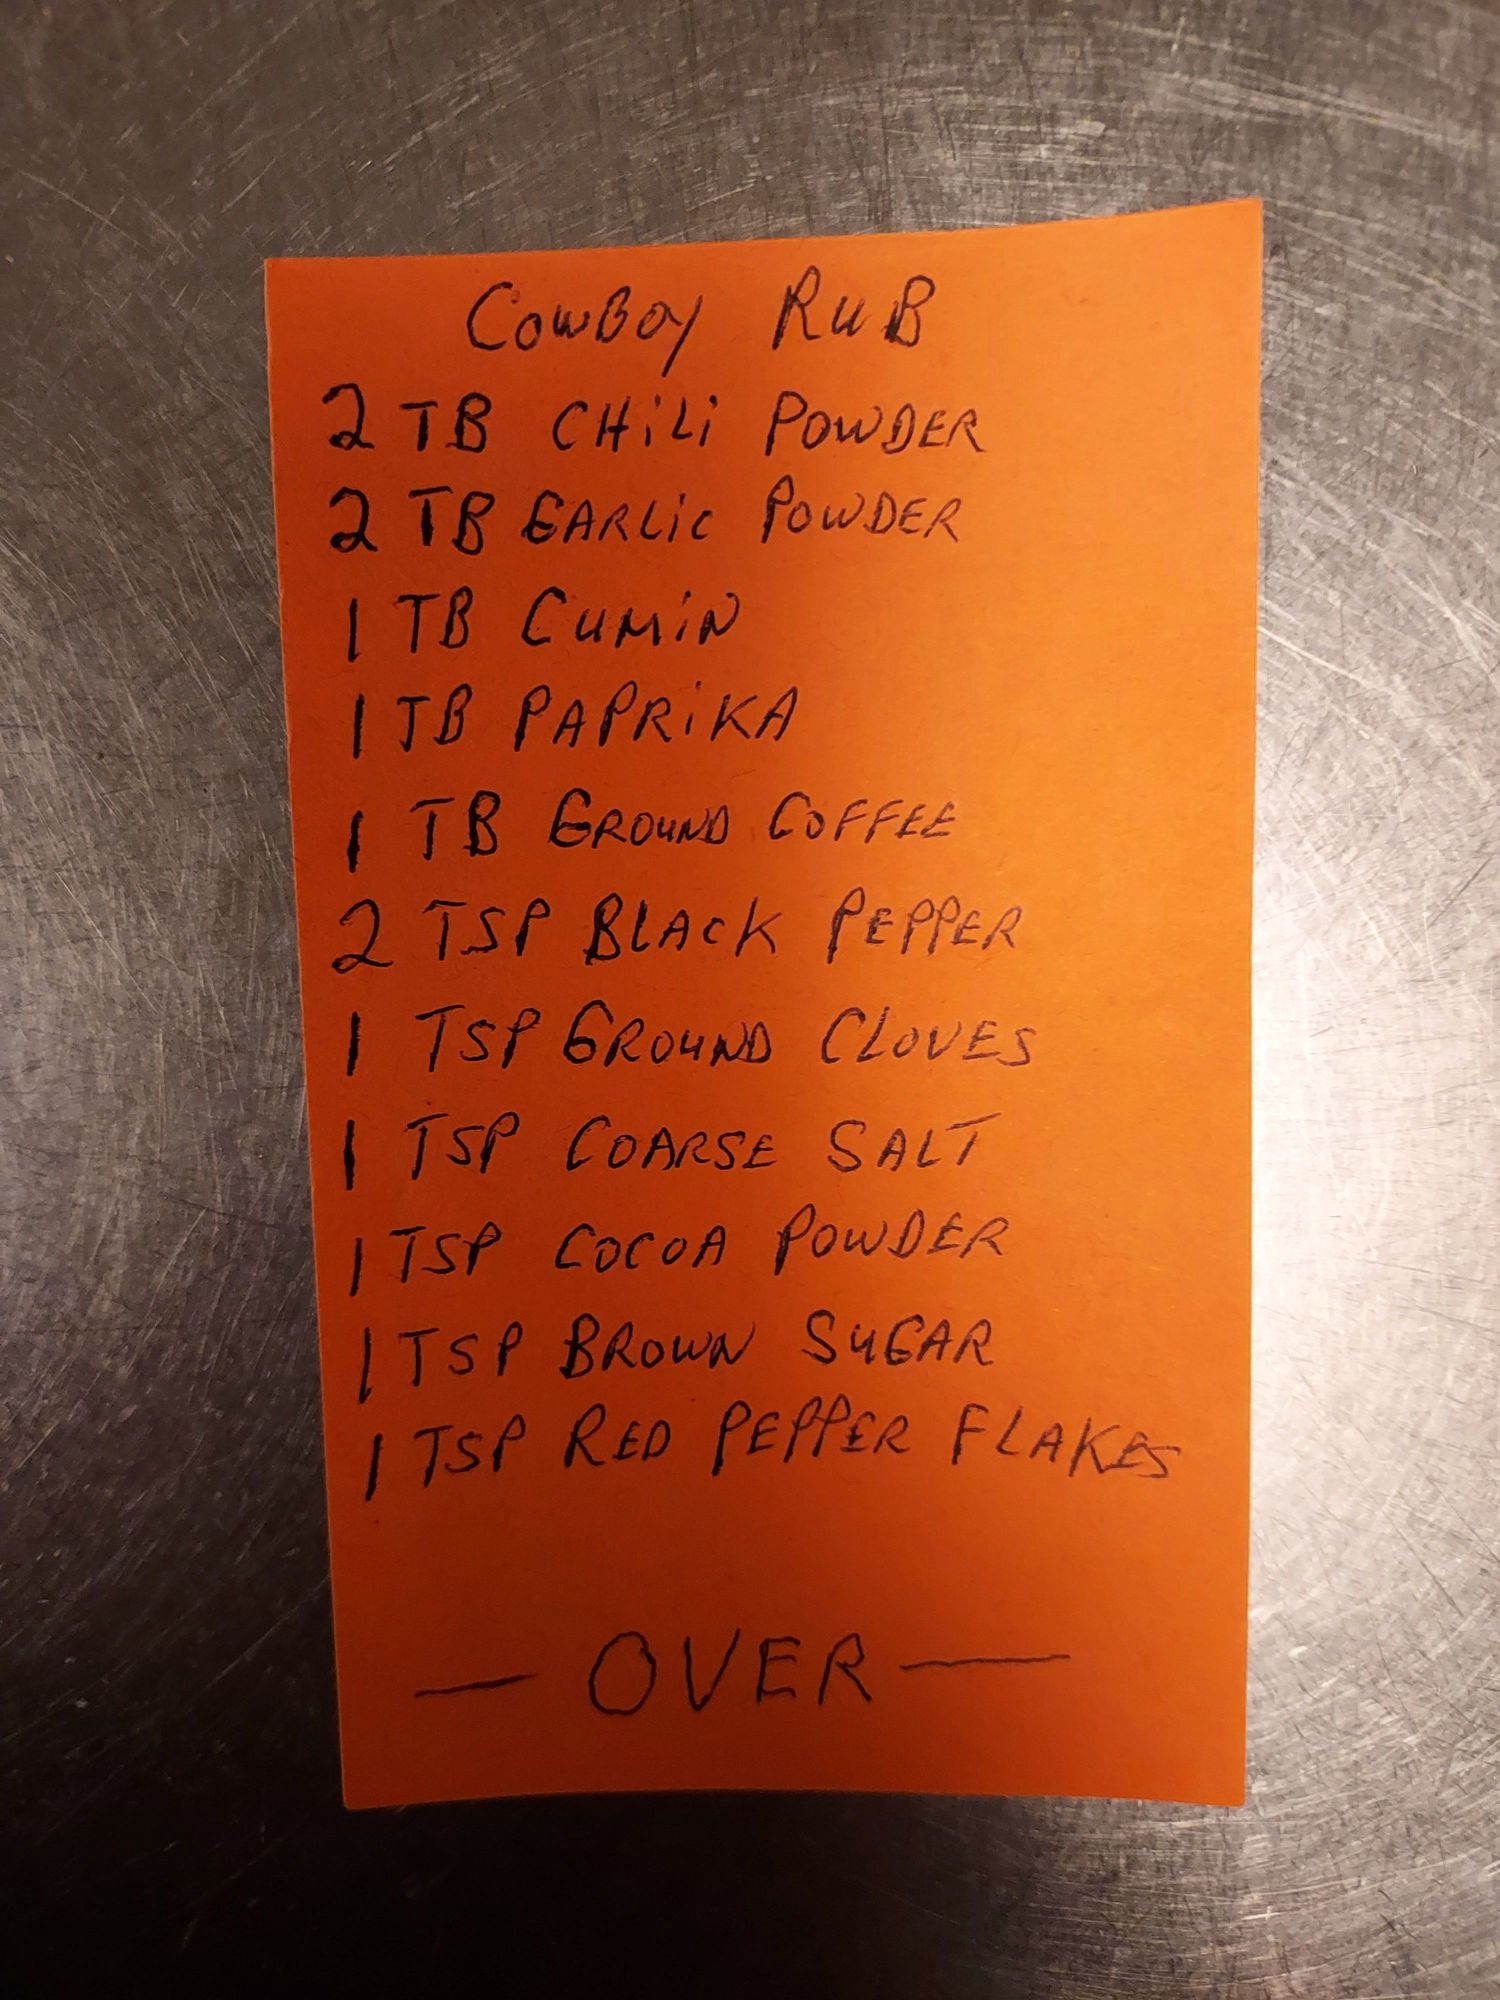 COWBOY RUB
2 TB CHiLi POWDER
2 TB GARLiC POWDER
1 TB CUMiN
1 TB PAPRiKA
1 TB GROUND COFFEE
2 TSP BLACK PEPPER
1 TSP GROUND CLOVES
1 TSP COARSE SALT
1 TSP COCOA POWDER
1 TSP BROWN SUGAR
1 TSP RED PEPPER FLAKES
— OVER —